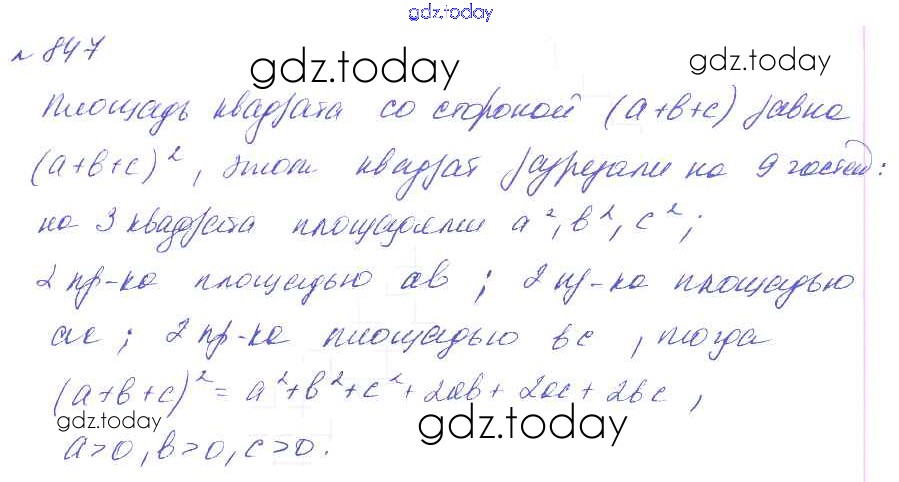 gdz.today
№ 847
gdz.today gdz.today
Площадь квадрата со стороной (a+b+c) равна
(a+b+c)², этот квадрат разрезали на 9 частей:
на 3 квадрата площадями a², b², c²;
2 пр-ка площадью ab; 2 пр-ка площадью
ac; 2 пр-ка площадью bc, тогда
(a+b+c)² = a²+b²+c²+2ab+2ac+2bc,
gdz.today gdz.today
a>0, b>0, c>0.